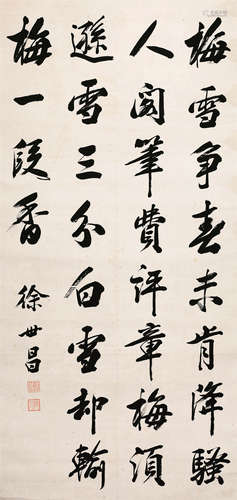 梅雪争春未肯降騷
人閣筆費評章梅須
遜雪三分白雪却輸
梅一段香
徐世昌